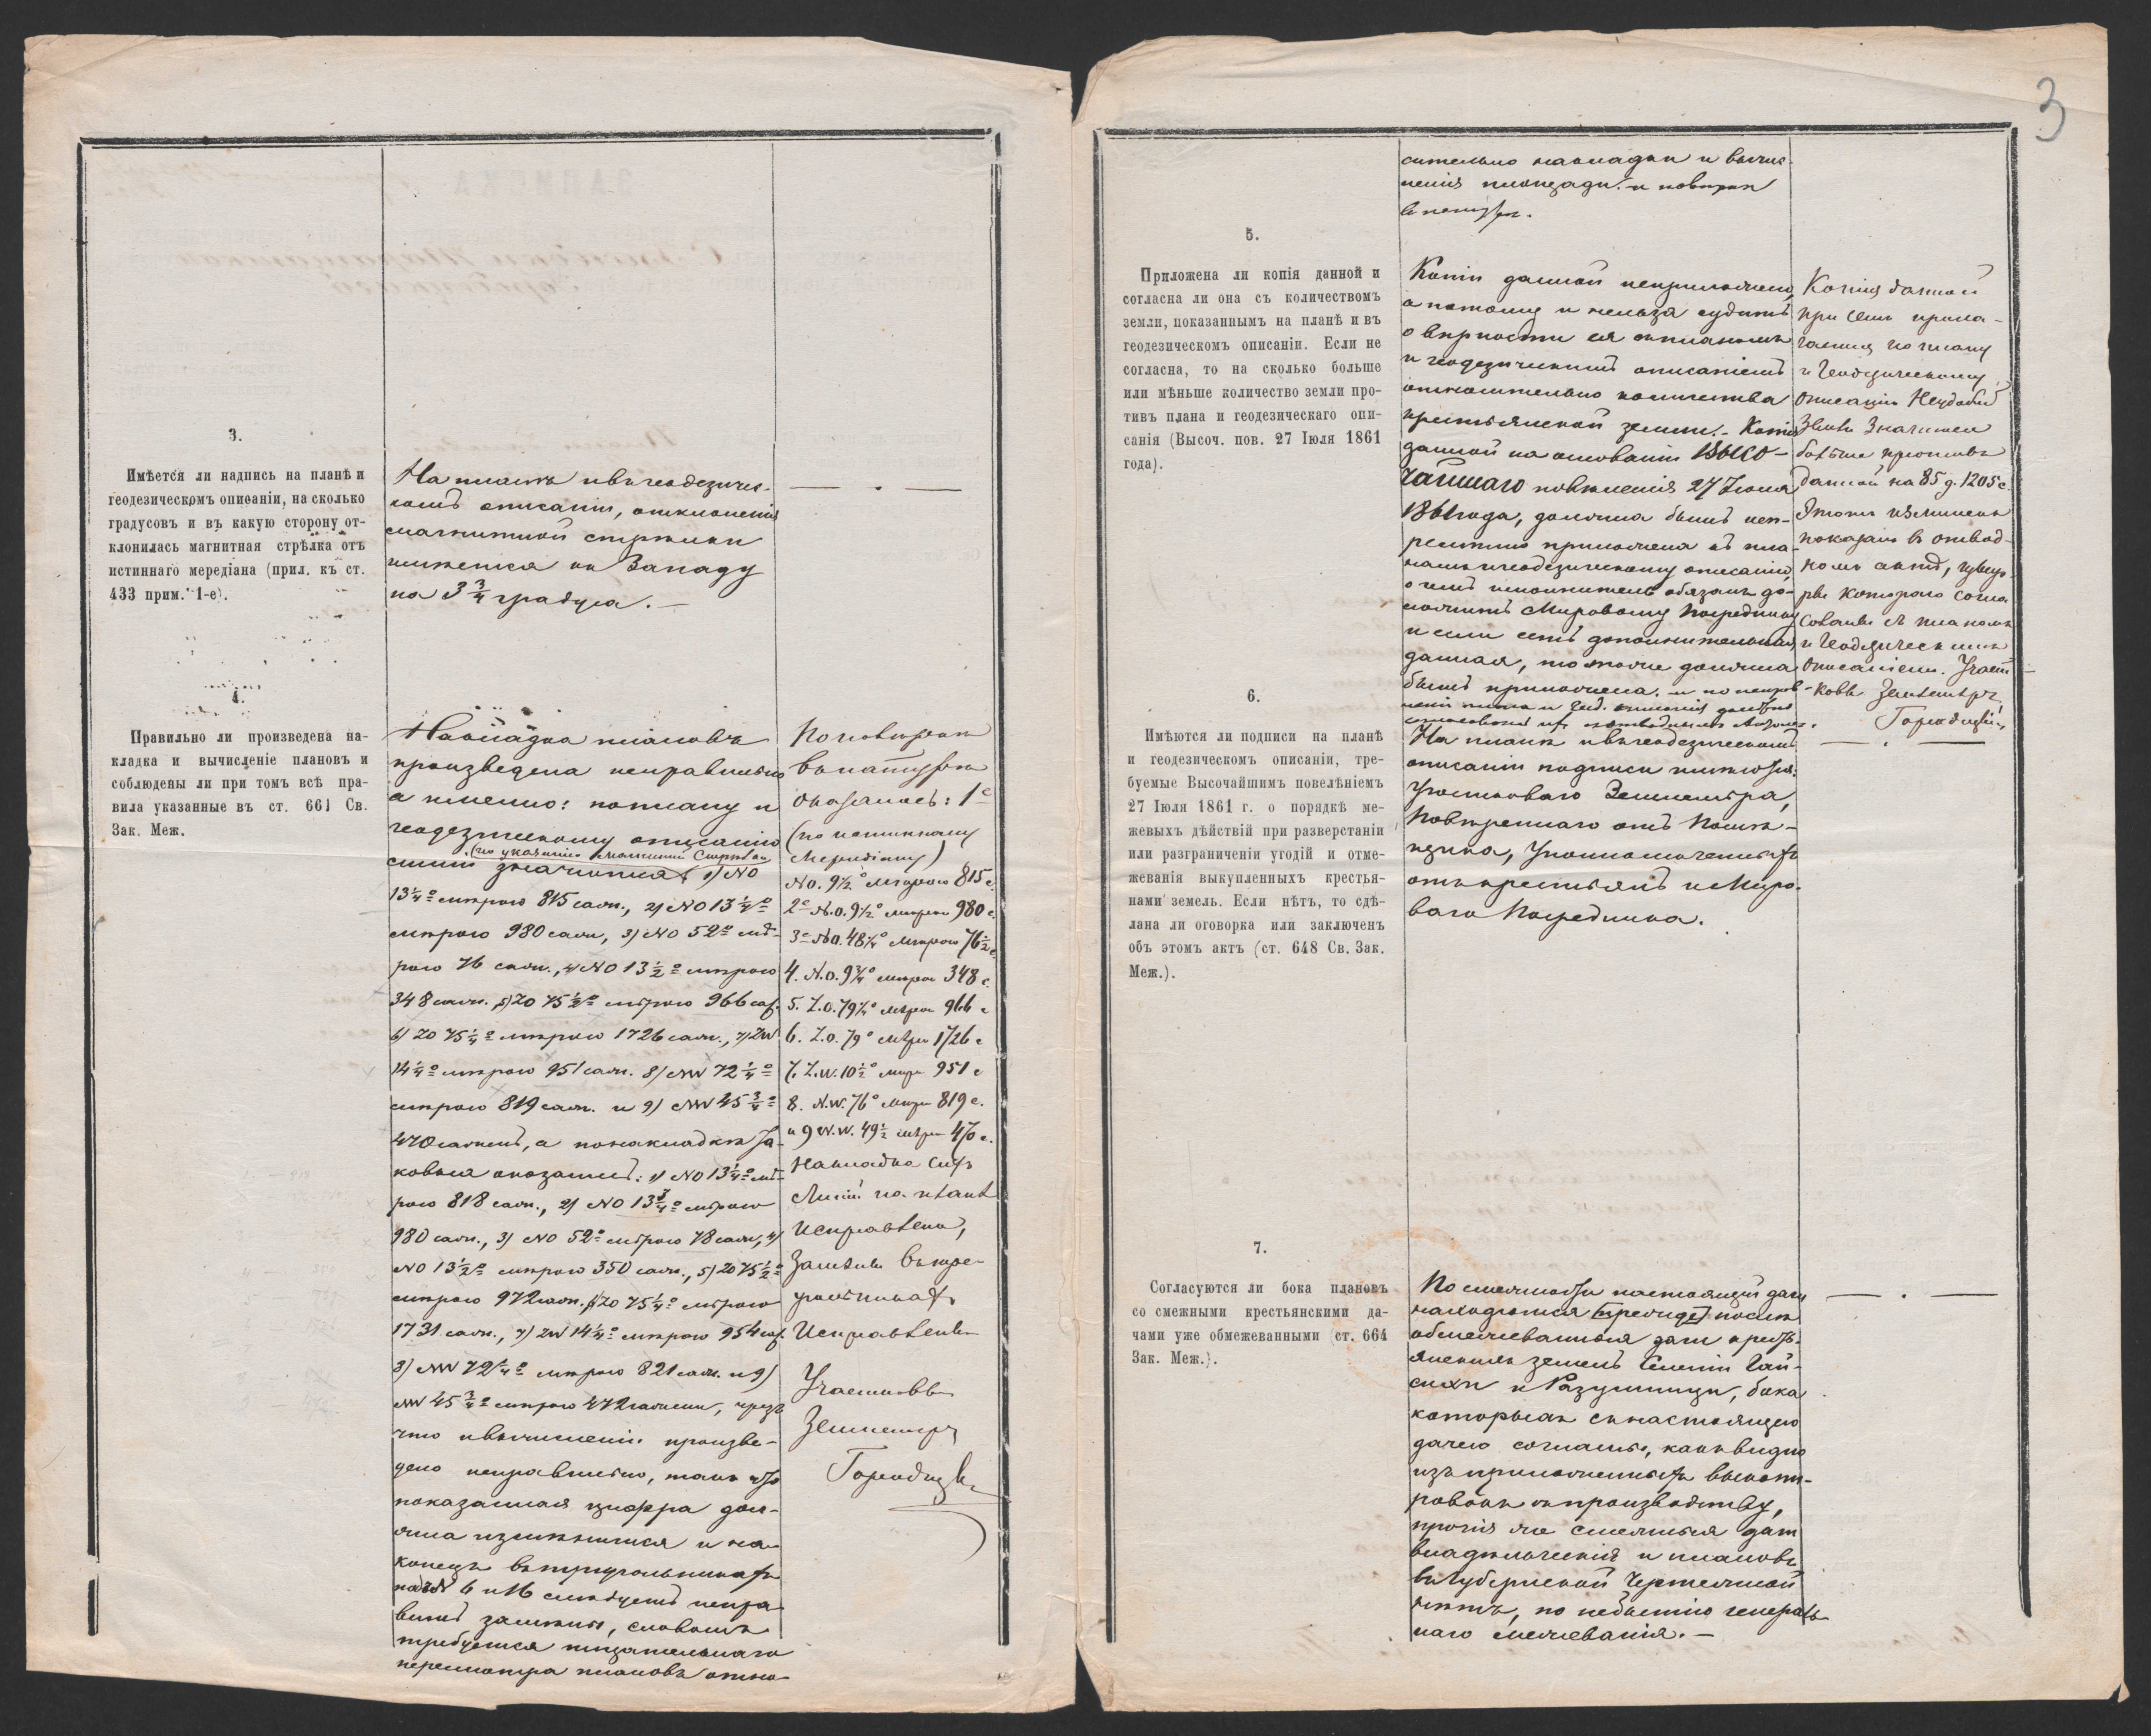 3.
Имѣется ли надпись на планѣ и
геодезическомъ описаніи, на сколько
градусовъ и въ какую сторону от-
клонилась магнитная стрѣлка отъ
истиннаго мередіана (прил. къ ст.
433 прим. 1-е).
На планѣ и въ геодезичес-
комъ описаніи, отклоненія
магнитной стрѣлки
имѣется къ Западу
на 3 3/4 градуса. —
— . —
4.
Правильно ли произведена на-
кладка и вычисленіе плановъ и
соблюдены ли при томъ всѣ пра-
вила указанные въ ст. 661 Св.
Зак. Меж.
Накладка плановъ
произведена неправильно
а именно: по плану и
геодезическому описанію
(по указанію магнитной Стрѣлки)
линіи значится 1) NO
13 1/4° мѣрою 815 саж., 2) NO 13 1/4°
мѣрою 980 саж, 3) NO 52° мѣ-
рою 76 саж., 4) NO 13 1/2° мѣрою
348 саж. 5) ZO 75 1/2° мѣрою 966 саж.
6) ZO 75 1/4° мѣрою 1726 саж., 7) ZW
14 1/4° мѣрою 951 саж. 8) NW 72 1/4°
мѣрою 819 саж. и 9) NW 45 3/4°
470 саженъ, а по накладкѣ та-
ковыя оказались: 1) NO 13 1/4° мѣ-
рою 818 саж., 2) NO 13 3/4° мѣрою
980 саж., 3) NO 52° мѣрою 78 саж, 4)
NO 13 1/2° мѣрою 350 саж., 5) ZO 75 1/2°
мѣрою 972 саж. 6) ZO 75 1/4° мѣрою
1731 саж., 7) ZW 14 1/4° мѣрою 954 саж.
8) NW 72 1/4° мѣрою 821 саж. и 9)
NW 45 3/4° мѣрою 472 сажени, чрезъ
что и вычисленіи произве-
дено неправильно, такъ что
показанная цифра дол-
жна измѣнится и на-
конецъ въ треугольникахъ
6 и 16 слѣдуетъ испра-
вить замѣны, словомъ
требуется тщательнаго
пересмотра плановъ отно-
По повѣркѣ
въ натурѣ
оказалось: 1е
(по истинному
Меридіану)
NO. 9 1/2° мѣрою 815 с.
2е N.O. 9 1/2° мѣрою 980 с.
3е NO. 48 1/4° мѣрою 76 1/2 с.
4. N.O. 9 3/4° мѣрою 348 с.
5. Z.O. 79 1/4° мѣрою 966 с
6. Z.O. 79° мѣрю 1726 с
7. Z.W. 10 1/2° мѣрю 951 с
8. N.W. 76° мѣрю 819 с.
и 9 N.W. 49 1/2 мѣрю 470 с.
Накладка сихъ
Линій по планѣ
Исправлена,
Замѣны въ тре-
угольникахъ
Исправлены
Участковы
Землемѣръ
3
сительно накладки и вычис-
ленія площади и повѣрки
въ натурѣ.
5.
Приложена ли копія данной и
согласна ли она съ количествомъ
земли, показаннымъ на планѣ и въ
геодезическомъ описаніи. Если не
согласна, то на сколько больше
или мѣньше количество земли про-
тивъ плана и геодезическаго опи-
санія (Высоч. пов. 27 Іюля 1861
года).
Копіи данной неприложено,
а потому и нельзя судить
о вѣрности ея съ планомъ
и геодезическимъ описаніемъ
относительно количества
крестьянской земли. — Копія
данной на основаніи Высо-
чайшаго повѣленія 27 Іюля
1861 года, должна быть неп-
ремѣнно приложена къ пла-
намъ и геодезическому описанію,
о чемъ исполнитель обязанъ до-
ложить Мировому Посреднику
и если есть дополнительная
данная, то тоже должна
быть приложена. и по исправ-
леніи плана и геод. описанія должно
Копія данной
при семъ прила-
гается по плану
и Геодезическому
описанію Неудобной
Земли Значится
болѣше противъ
данной на 85 д. 1205 с.
Этотъ излишекъ
показанъ въ отвод-
номъ актѣ, цыф-
ры котораго согла
сованы съ планомъ
и Геодезическимъ
описаніемъ. Участ-
ковы Землемѣръ
6.
Имѣются ли подписи на планѣ
и геодезическомъ описаніи, тре-
буемые Высочайшимъ повелѣніемъ
27 Іюля 1861 г. о порядкѣ ме-
жевыхъ дѣйствій при разверстаніи
или разграниченіи угодій и отме-
жеванія выкупленныхъ крестья-
нами земель. Если нѣтъ, то сдѣ-
лана ли оговорка или заключенъ
объ этомъ актъ (ст. 648 Св. Зак.
Меж.).
На планѣ и въ геодезическомъ
описаніи подписи имѣются:
Участковаго Землемѣра,
Повѣреннаго отъ Помѣ-
щика, Уполномоченныхъ
отъ крестьянъ и Миро-
ваго Посредника.
— . —
7.
Согласуются ли бока плановъ
со смежными крестьянскими да-
чами уже обмежеванными (ст. 664
Зак. Меж.).
По смежности настоящей дачи
находятся [прежде] послѣ
обмежеванныя дачи кресть-
янскихъ земель Селеній Гай-
сихи и Разумницы, бока
которыхъ съ настоящею
дачею согласны, какъ видно
изъ приложенныхъ выкопи-
ровокъ къ производству,
прочія же смежныя дачи
владѣльческія и плановъ
въ Губернской Чертежной
нѣтъ, по небытію генераль-
наго межеванія. —
— . —